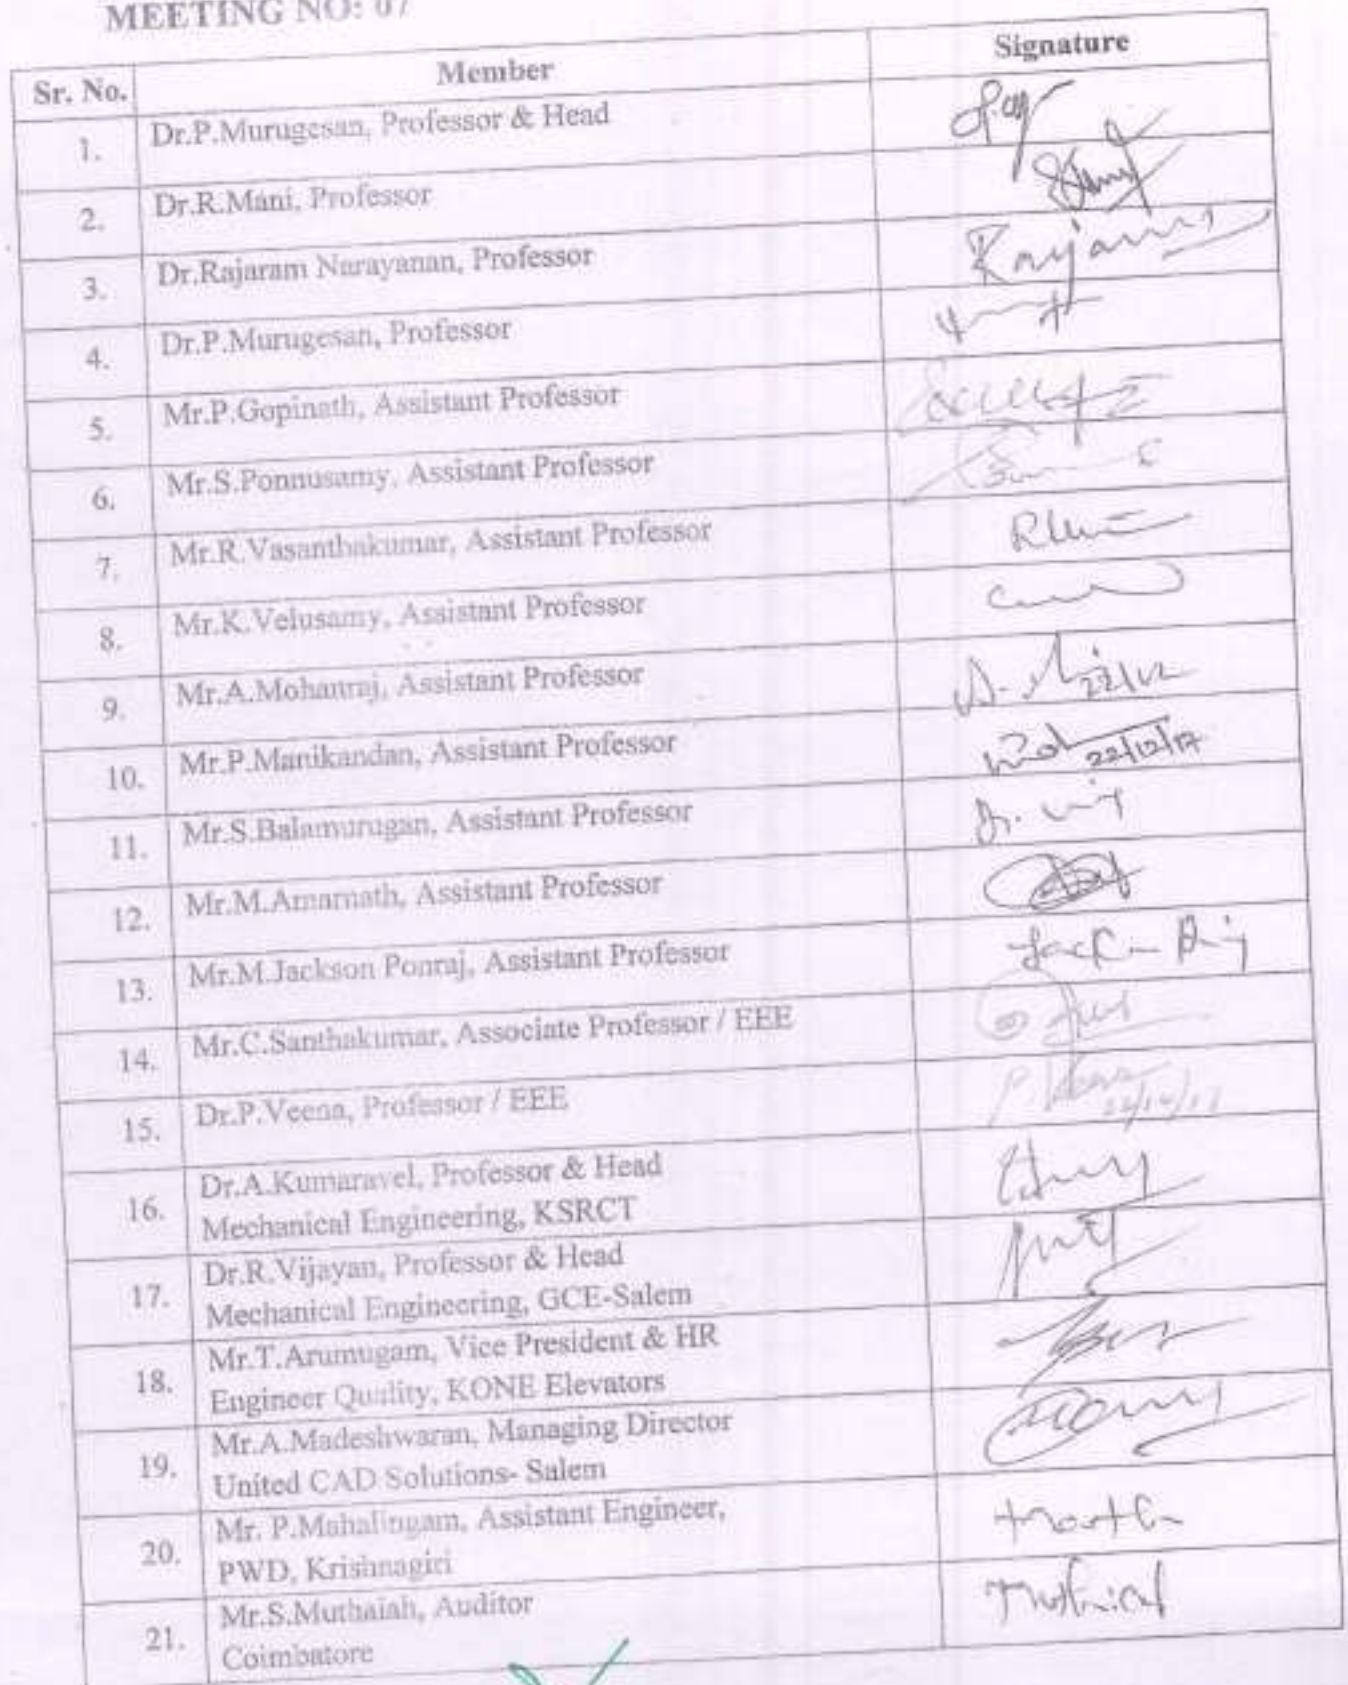 MEETING NO: 07
Sr. No. Member Signature
1. Dr.P.Murugesan, Professor & Head
2. Dr.R.Mani, Professor
3. Dr.Rajaram Narayanan, Professor
4. Dr.P.Murugesan, Professor
5. Mr.P.Gopinath, Assistant Professor
6. Mr.S.Ponnusamy, Assistant Professor
7. Mr.R.Vasanthakumar, Assistant Professor
8. Mr.K.Velusamy, Assistant Professor
9. Mr.A.Mohanraj, Assistant Professor 22/12
10. Mr.P.Manikandan, Assistant Professor 22/12/17
11. Mr.S.Balamurugan, Assistant Professor
12. Mr.M.Amarnath, Assistant Professor
13. Mr.M.Jackson Ponraj, Assistant Professor
14. Mr.C.Santhakumar, Associate Professor / EEE
15. Dr.P.Veena, Professor / EEE P. Veena
22/12/17
16. Dr.A.Kumaravel, Professor & Head
Mechanical Engineering, KSRCT
17. Dr.R.Vijayan, Professor & Head
Mechanical Engineering, GCE-Salem
18. Mr.T.Arumugam, Vice President & HR
Engineer Quality, KONE Elevators
19. Mr.A.Madeshwaran, Managing Director
United CAD Solutions- Salem
20. Mr. P.Mahalingam, Assistant Engineer,
PWD, Krishnagiri
21. Mr.S.Muthaiah, Auditor
Coimbatore